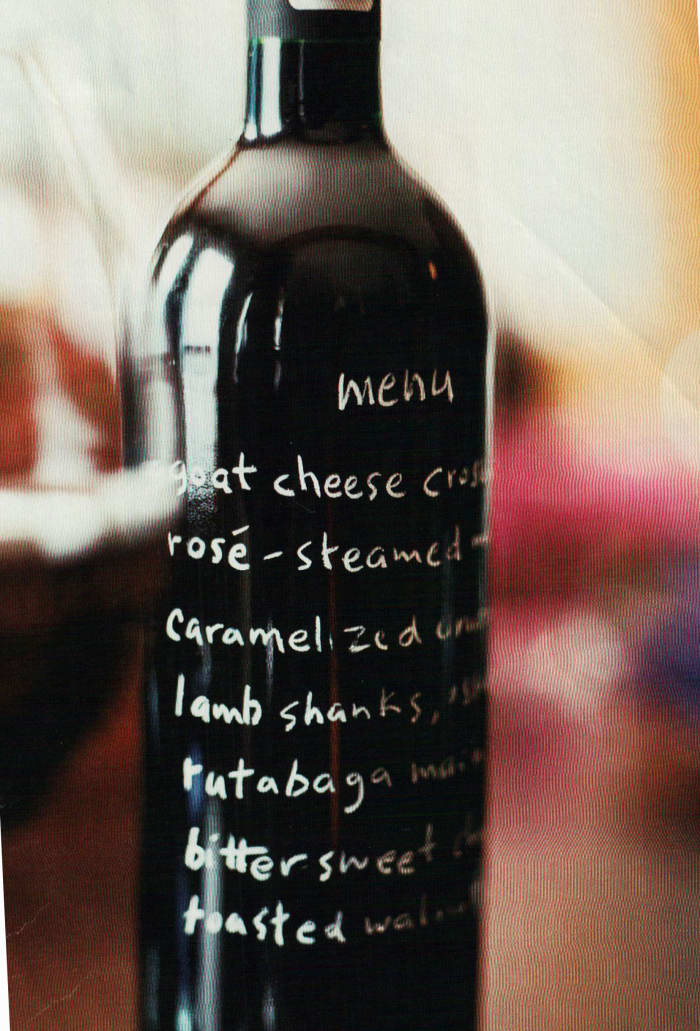 menu
goat cheese
rosé - steamed
caramelized
lamb shanks,
rutabaga
bittersweet
toasted